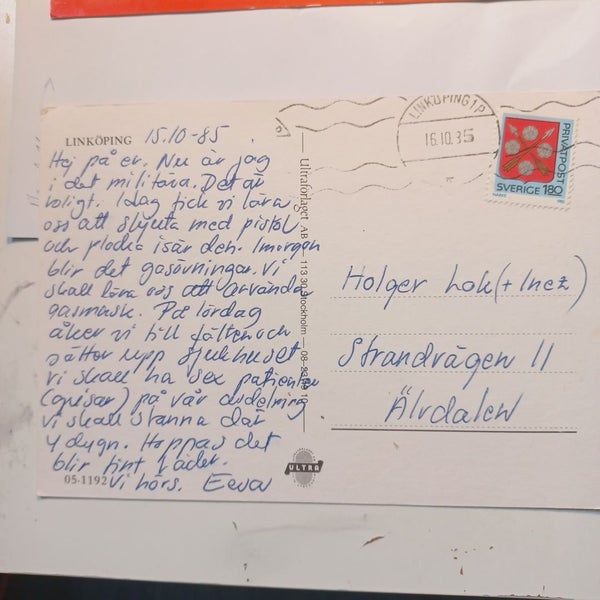 LINKÖPING 15.10-85
Hej på er. Nu är jag
i det militära. Det är
roligt. Idag fick vi lära
oss att skjuta med pistol
och plocka isär den. Imorgon
blir det gasövningar. Vi
skall lära oss att använda
gasmask. På lördag
åker vi till fälten och
sätter upp sjukhuset
vi skall ha sex patienter
(grisar) på vår avdelning
vi skall stanna där
4 dygn. Hoppas det
blir fint väder.
05-1192 Vi hörs. Eeva
Ultraförlaget AB — 113 30 Stockholm — 08-
ULTRA
LINKÖPING 1P
16.10.85
PRIVATPOST
SVERIGE 180
Holger Lok (+ Inez)
Strandvägen 11
Älvdalen